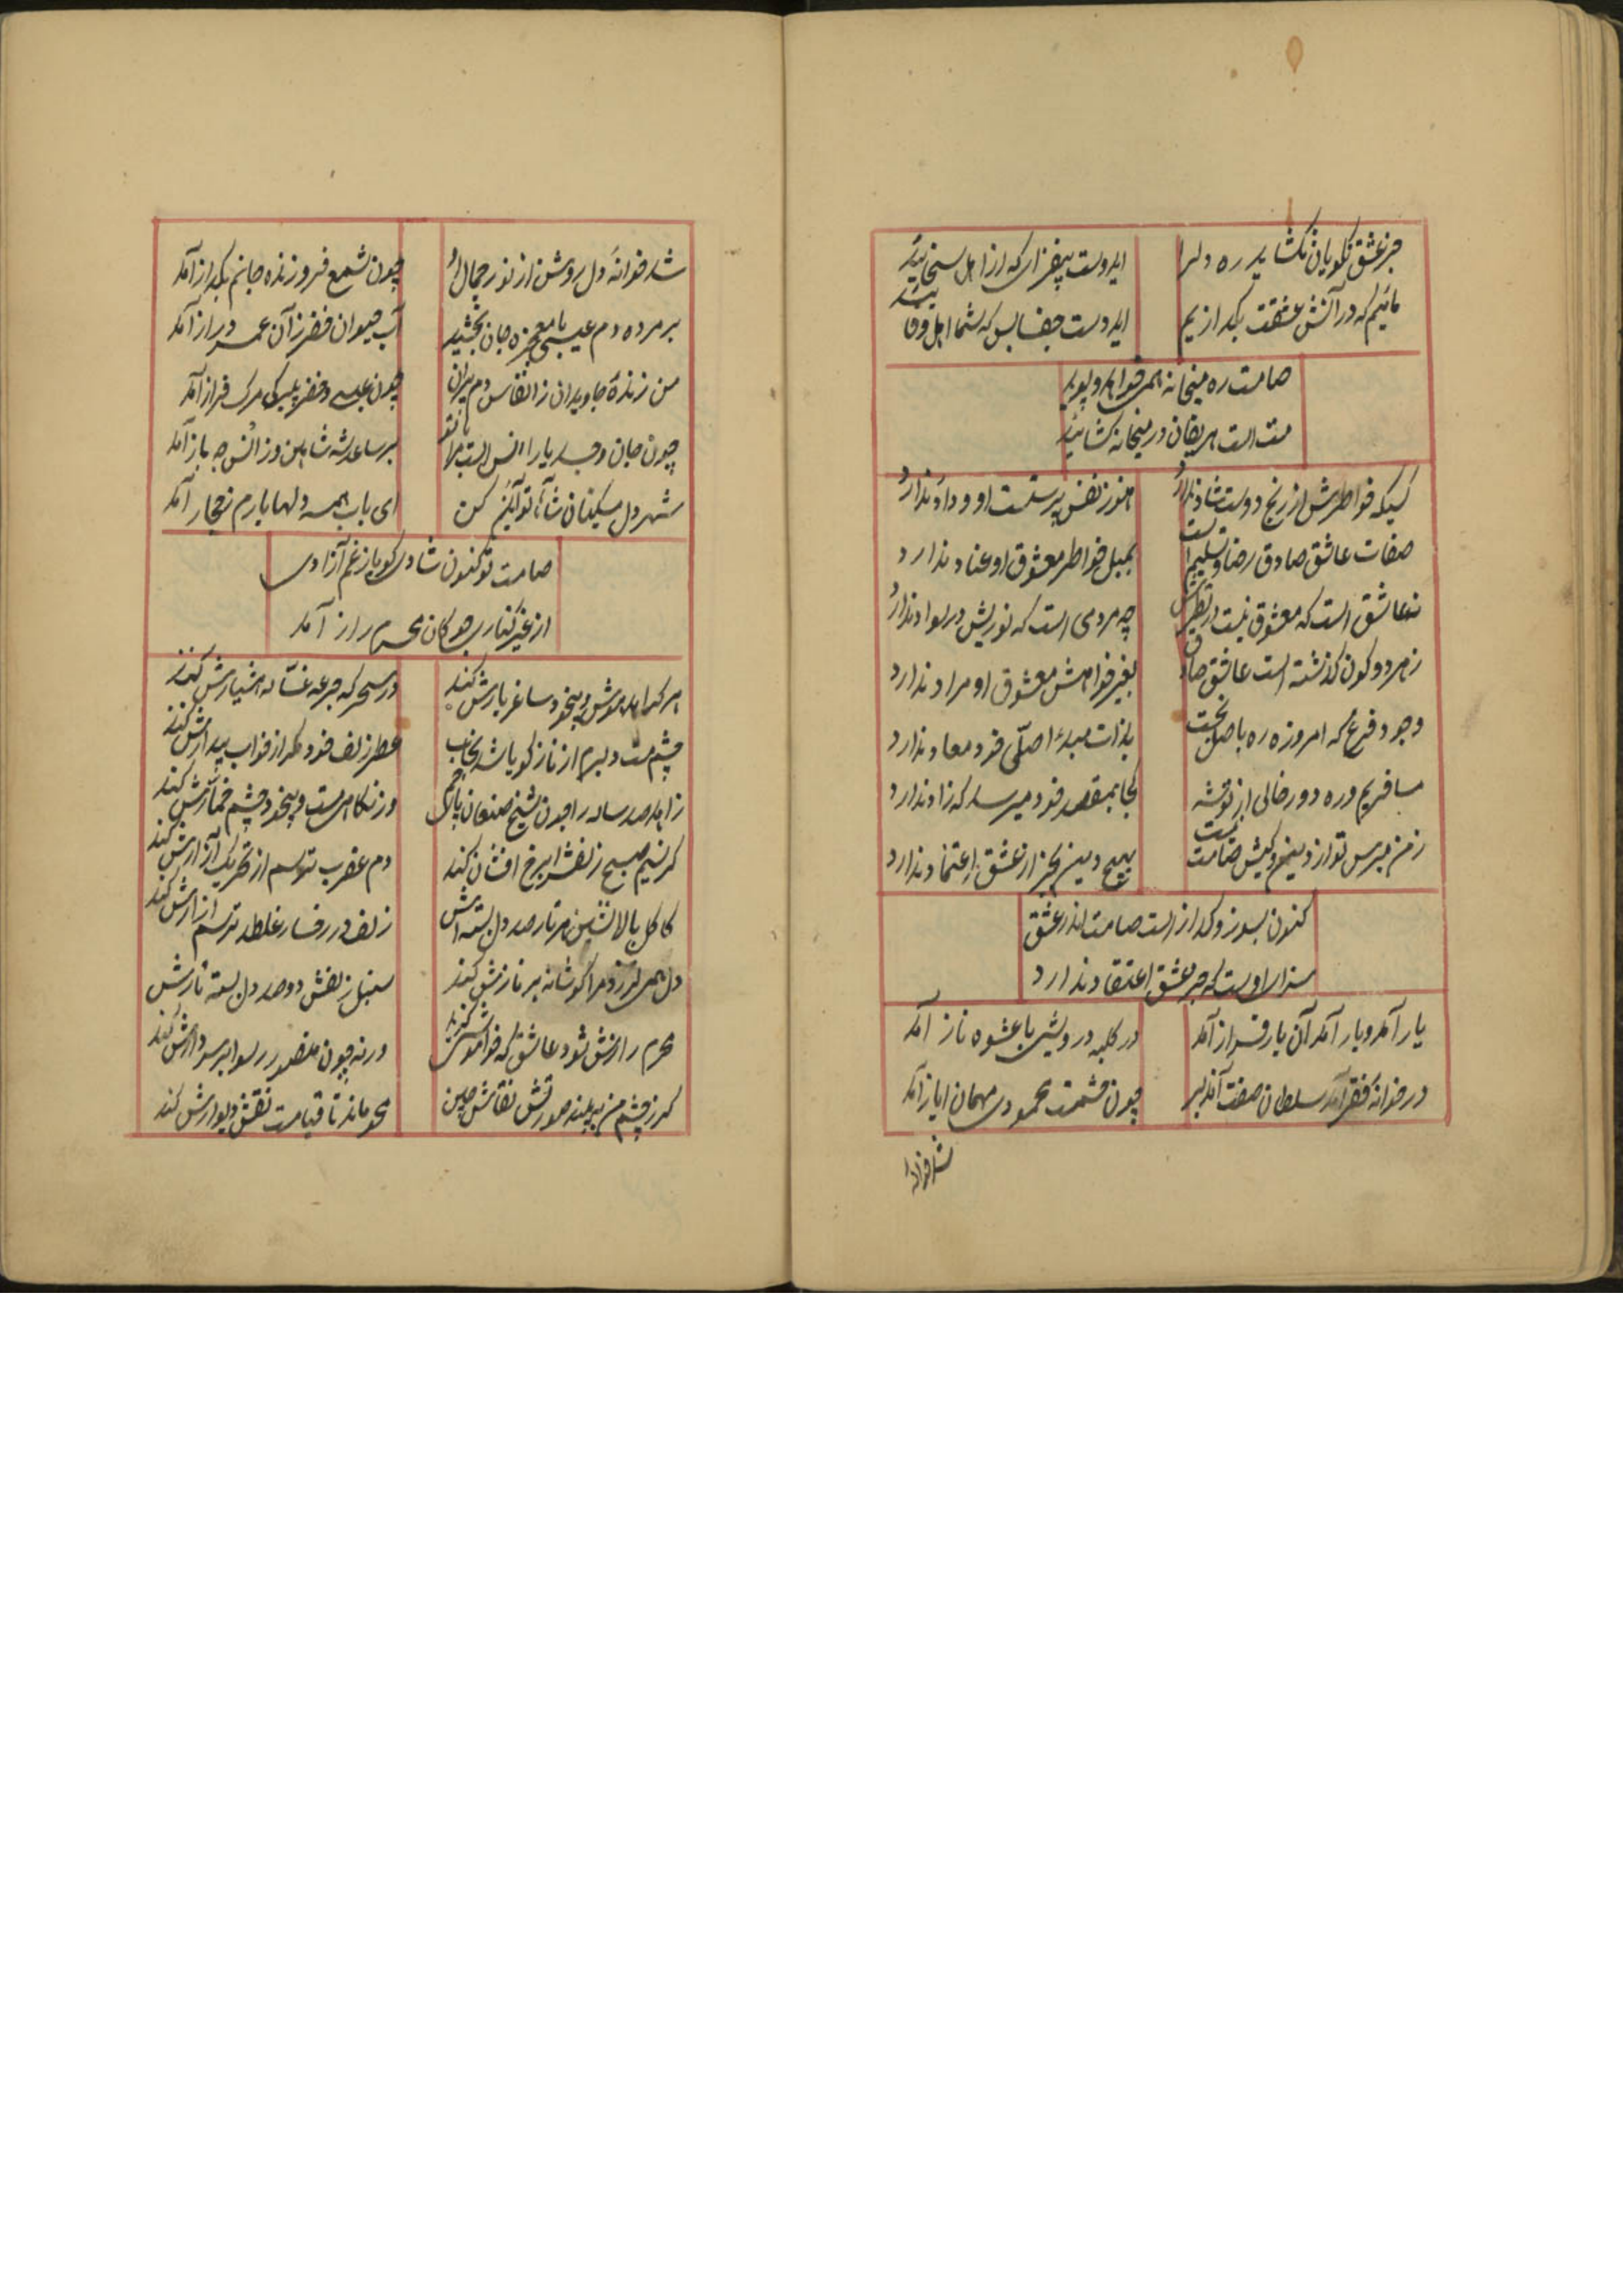 جز عشق نکویان نکشاید ره دلرا
ایدوست بپرهیز که از اهل
مائیم که در آتش عشقت بکدازیم
ایدوست جفا بس که شما اهل وفائید
صامت ره میخانه همیخواهد و پوید
مست است حریفان در میخانه کشائید
کسیکه خواطرش از رنج دوست شاد ندارد
هنوز نفس پرستست او وداد ندارد
صفات عاشق صادق رضا و تسلیم است
بمیل خواطر معشوق او عناد ندارد
نه عاشق است که معشوق نیست در نظرش
چه مردمی است که نوریش در سواد ندارد
زهر دو کون کذشته است عاشق صادق
بغیر خواهش معشوق او مراد ندارد
وجود فرع که امروزه ره باصل نجست
بذات مبدء اصلی خود معاد ندارد
مسافریم و ره دور خالی از توشه
کجا بمقصد خود میرسد که زاد ندارد
ز من مپرس تو از دینم و کیش صامت چیست
بهیچ دین بجز از عشق اعتماد ندارد
کنون بسوز و کداز است صامت اندر عشق
سزای اوست که جز عشق اعتقاد ندارد
یار آمد و یار آمد آن یار فراز آمد
در کلبه درویشی با عشوه ناز آمد
در خوانه فقر آمد سلطان صفت آن دلبر
چون حشمت محمودی مهمان ایاز آمد
شد خوانه
شد خوانه دل روشن از نور جمال او
چون شمع فروزنده جانم بکداز آمد
بر مرده دم عیسی با معجزه جان بخشید
آب حیوان خضر ز آن عمر دراز آمد
من زنده جاویدان ز انفاس دم پیران
چون عیسی و خضر مرک فراز آمد
چون جان و جسد یارا انس است مرا با تو
بر ساعد شه شاهین وز آنس چه باز آمد
شهر دل مسکینان شاها تو آیین کن
ای باب همه دلها یارم آمد
صامت تو کنون شادی کو باز غم آزادی
از غیر کنار بجو کان محرم راز آمد
هر که را مدهوش و بیخود ساغر یارش کند
در سحر که جرعه هشیارش کند
چشم مست دلبرم از ناز کویا شد بخواب
عطر زلف خود مکر از خواب بیدارش کند
زاهد صد ساله را چون شیخ صنعان
در نکاهی مست و بیخود چشم خمارش کند
کر نسیم صبح زلفش را برخ افشان کند
دم عقرب ترسم از تحریک آزارش کند
کاکل بالا نشین هر تار صد دل بسته اش
زلف در رخسار غلطد ترسم آزارش کند
دل همی لرزد مرا کو شانه بر نازش کند
سنبل زلفش دو صد دل بسته تارش کند
محرم رازش شود عاشق که خواموشی کزید
ورنه چون منصور رسوا بر سر دارش کند
کر ز چشم من ببیند صورتش نقاش چین
محو ماند تا قیامت نقش دیوارش کند